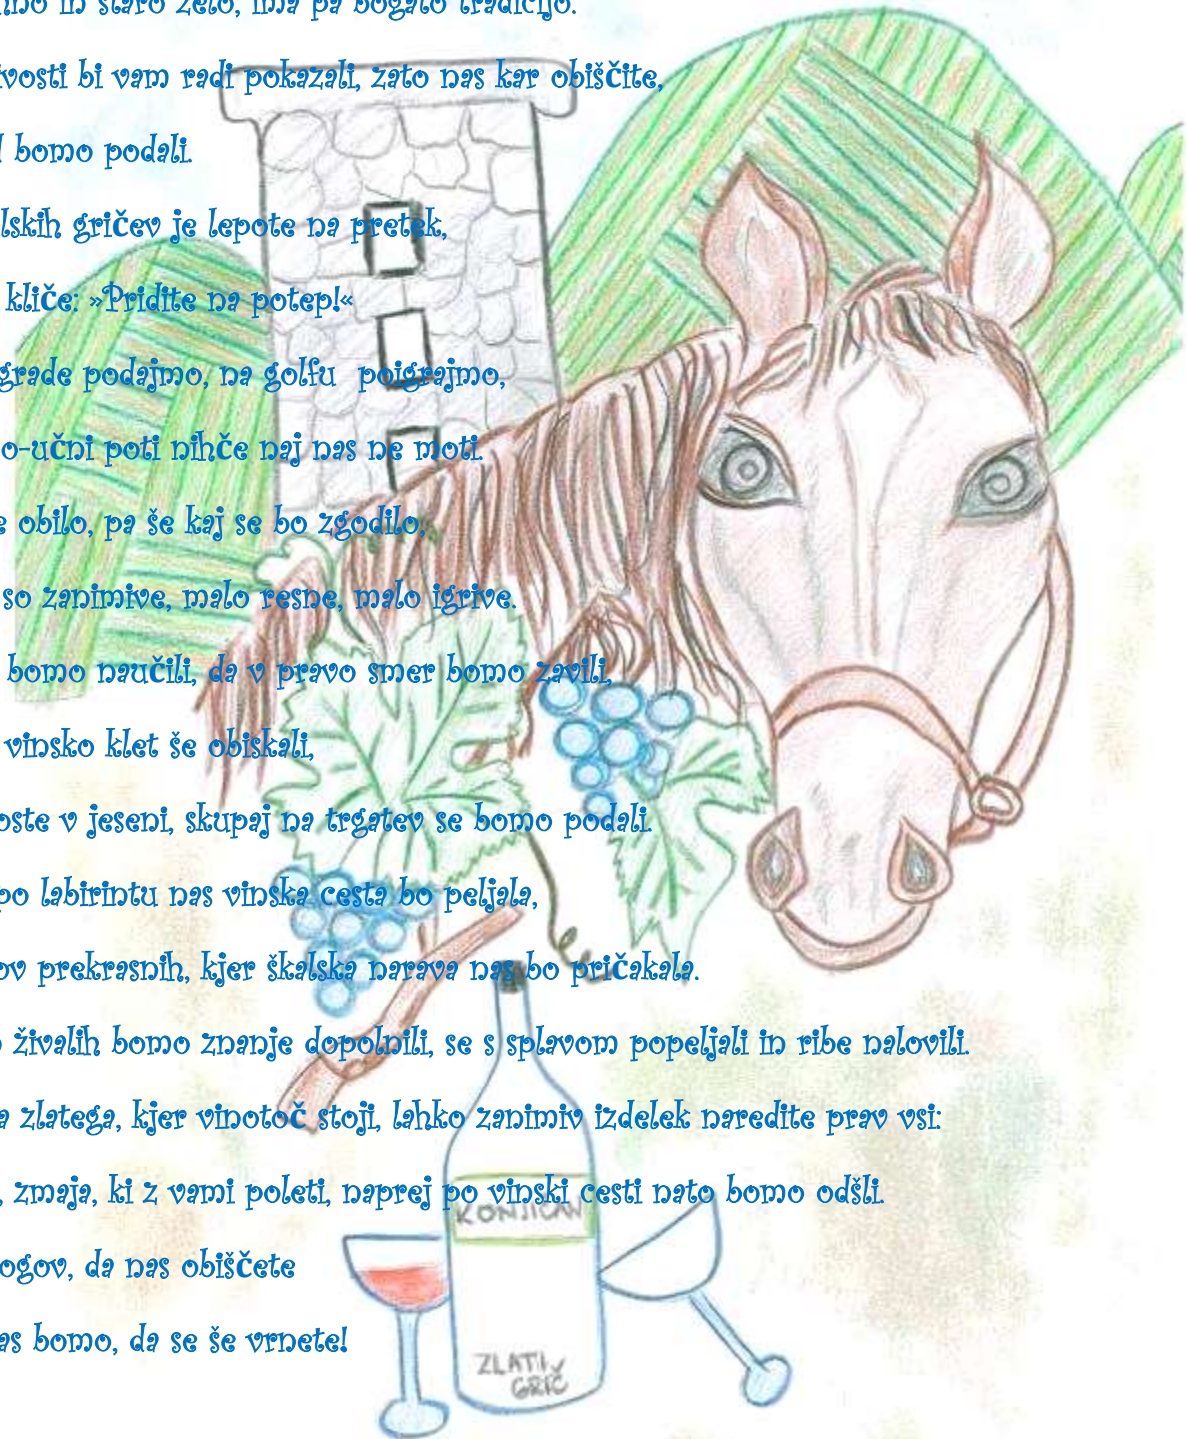 in staro zelo, ima pa bogato tradicijo.
bi vam radi pokazali, zato nas kar obiščite,
bomo podali.
gričev je lepote na pretek,
kliče: »Pridite na potep!«
podajmo, na golfu poigrajmo,
poti nihče naj nas ne moti.
obilo, pa še kaj se bo zgodilo,
so zanimive, malo resne, malo igrive.
bomo naučili, da v pravo smer bomo zavili,
vinsko klet še obiskali,
v jeseni, skupaj na trgatev se bomo podali.
po labirintu nas vinska cesta bo peljala,
prekrasnih, kjer škalska narava nas bo pričakala.
živalih bomo znanje dopolnili, se s splavom popeljali in ribe nalovili.
zlatega, kjer vinotoč stoji, lahko zanimiv izdelek naredite prav vsi:
zmaja, ki z vami poleti, naprej po vinski cesti nato bomo odšli.
KONJIČAN
da nas obiščete
bomo, da se še vrnete!
ZLATI
GRIČ